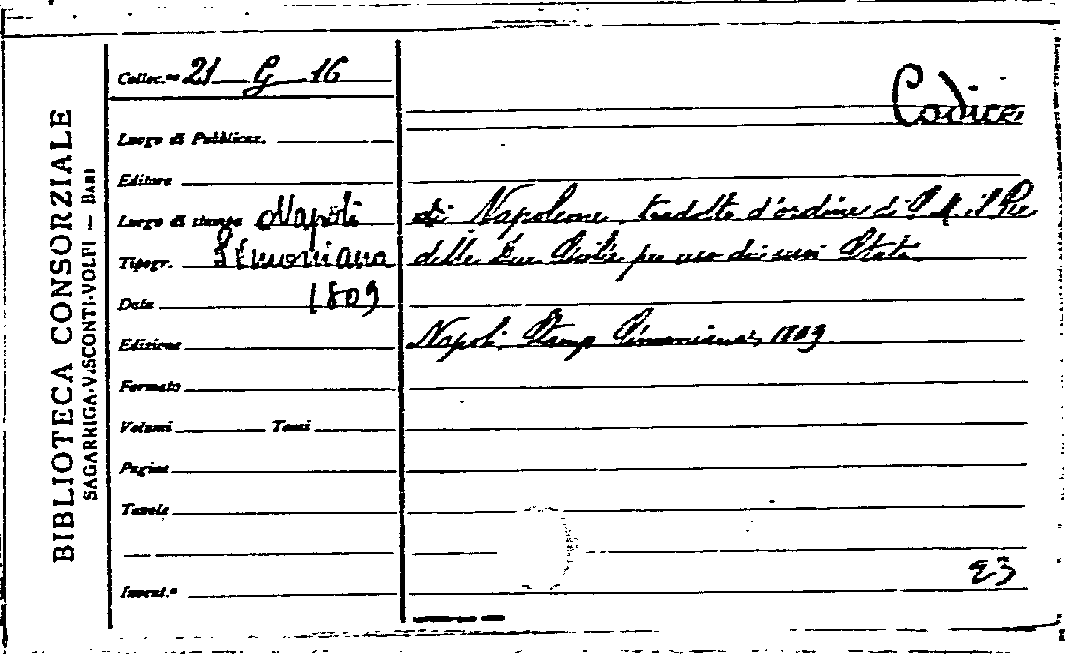 BIBLIOTECA CONSORZIALE
SAGARRIGA-VISCONTI-VOLPI — BARI
Colloc.ne 21 G 16
Luogo di Pubblicaz.
Editore
Luogo di stampa Napoli
Tipogr. Simoniana
Data 1809
Edizione
Formato
Volumi Tomi
Pagine
Tavole
Invent.o
Codice
di Napoleone tradotto d'ordine di S. M. il Re
delle Due Sicilie per uso di suoi Stati
Napoli. Stamp Simoniana, 1809
23